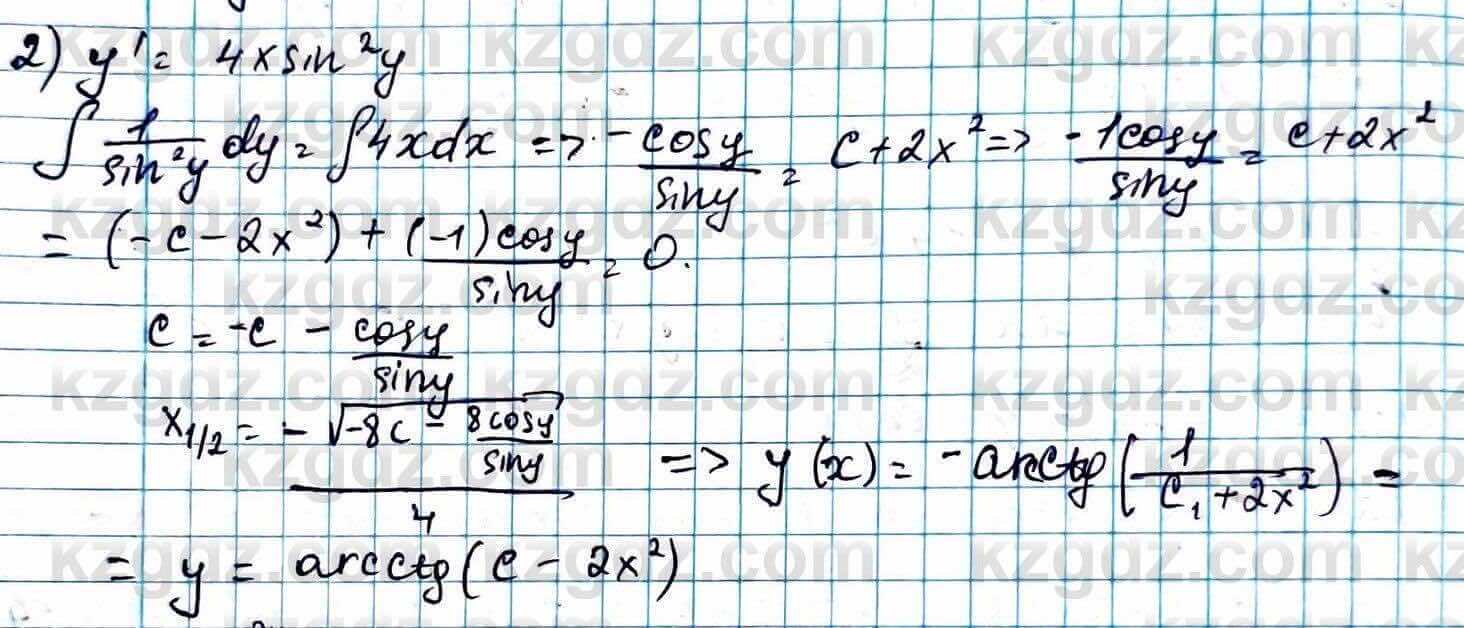 2) y' = 4x sin²y
∫ 1/sin²y dy = ∫4xdx => - cosy/siny = C+2x² => -1cosy/siny = C+2x²
= (-c-2x²) + (-1)cosy/siny = 0.
C = -C - cosy/siny
x₁/₂ = - √(-8C - 8cosy/siny)/4 => y(x) = -arcctg(1/(C₁+2x²)) =
= y = arcctg(C-2x²)
kzgdz.com